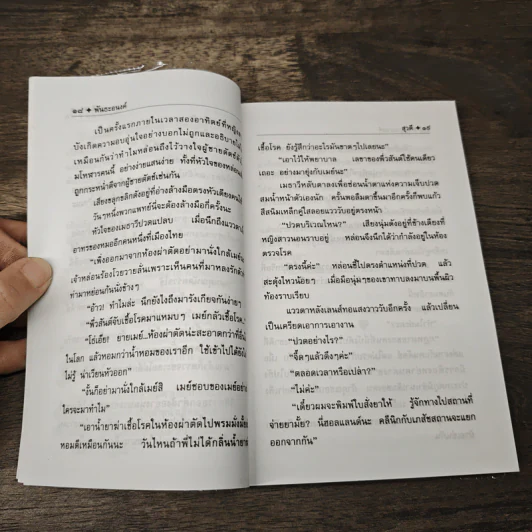 ๑๘ ✦ พันธะอนงค์
เป็นครั้งแรกภายในเวลาสองอาทิตย์ที่หญิง
บังเกิดความอบอุ่นใจอย่างบอกไม่ถูกและอธิบายไม่
เหมือนกันว่าทำไมหล่อนถึงไว้วางใจผู้ชายตัดขั้ว
มโหฬารคนนี้ อย่างง่ายแสนง่าย ทั้งที่หัวใจของหล่อน
ถูกกระหน้ำตีจากผู้ชายตัดขั้วเช่นกัน
เสียงซุกซิกดังอยู่ที่อ่างล้างมือตรงหัวเตียงคนไข้
วันๆหนึ่งพวกแพทย์นี่จะต้องล้างมือกี่ครั้งนะ
หัวใจของเมธาวีปวดแปลบ เมื่อนึกถึงแววตา
อาทรของหมออีกคนหนึ่งที่เมืองไทย
“เพิ่งออกมาจากห้องผ่าตัดอย่ามานั่งใกล้เมย์
เจ้าหล่อนร้องโวยวายลั่นเพราะเห็นคนที่มาหลงรักตัว
ทำมาหย่อนก้นนั่งข้างๆ
“อ้าว! ทำไมล่ะ นึกยังไงถึงมารังเกียจกันง่ายๆ
“พี่วสันต์จับเชื้อโรคมาแหมบๆ เมย์กลัวเชื้อโรค
“โธ่เอ๊ย! ยายเมย์..ห้องผ่าตัดน่ะสะอาดกว่าที่อื่น
ในโลก แล้วหอมกว่าน้ำหอมของเราอีก ใช้เข้าไปได้ยังไง
ไม่รู้ น่าเวียนหัวออก”
“งั้นก็อย่ามานั่งใกล้เมย์สิ เมย์ชอบของเมย์อย่าง
ใครจะมาทำไม”
“เอาน้ำยาฆ่าเชื้อโรคในห้องผ่าตัดไปพรมมั่งมั้ย
หอมดีเหมือนกันนะ วันไหนถ้าพี่ไม่ได้กลิ่นน้ำยา
สุวดี ✦ ๑๙
เชื้อโรค ยังรู้สึกว่าอะไรมันขาดๆไปเลยนะ”
“เอาไว้ให้พยาบาล เลขาของพี่วสันต์ใช้คนเดียว
เถอะ อย่างมายุ่งกับเมย์นะ”
เมธาวีหลับตาลงเพื่อซ่อนน้ำตาแห่งความเจ็บปวด
สมน้ำหน้าตัวเองนัก ครั้นพอลืมตาขึ้นมาอีกครั้งก็พบกับแก้ว
สีสนิมเหล็กคู่ใสลอยแวววับอยู่ตรงหน้า
“ปวดบริเวณไหน?” เสียงนุ่มดังอยู่ที่ข้างเตียงที่
หญิงสาวนอนราบอยู่ หล่อนจึงนึกได้ว่ากำลังอยู่ในห้อง
ตรวจโรค
“ตรงนี้ค่ะ” หล่อนชี้ไปตรงตำแหน่งที่ปวด แล้ว
สะดุ้งไหวน้อยๆ เมื่อมือนุ่มๆของเขาทาบลงมาบนพื้นผิว
ท้องราบเรียบ
แววตาหลังเลนส์ทอแสงวาววับอีกครั้ง แล้วเปลี่ยน
เป็นเครียดเอาการเอางาน
“ปวดอย่างไร?”
“จี๊ดๆแล้วตึงๆค่ะ”
“ตลอดเวลาหรือเปล่า?”
“ไม่ค่ะ”
“เดี๋ยวผมจะพิมพ์ใบสั่งยาให้ รู้จักทางไปสถานที่
จ่ายยามั้ย? นี่ฮอลแลนด์นะ คลีนิกกับเภสัชสถานจะแยก
ออกจากกัน”